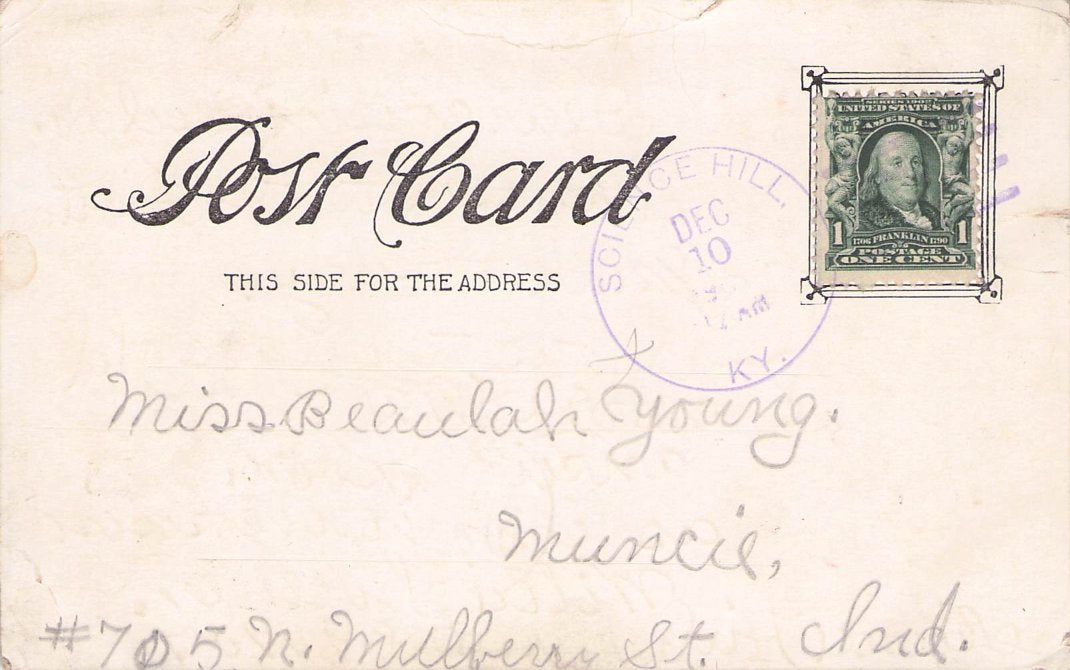 SERIES 1902
UNITED STATES OF
AMERICA
1 1706 FRANKLIN 1790 1
POSTAGE
ONE CENT
Post Card
THIS SIDE FOR THE ADDRESS
SCIENCE HILL.
DEC
10
AM
KY.
Miss Beaulah Young.
Muncie,
#705 N. Mulberry St. Ind.